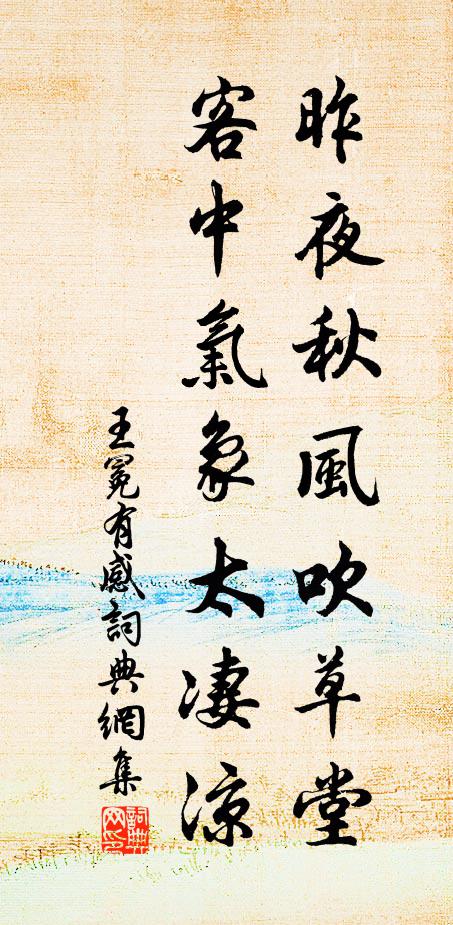 昨夜秋風吹草堂
客中氣象太凄涼
王冕有感詞典網集
詞典
网印